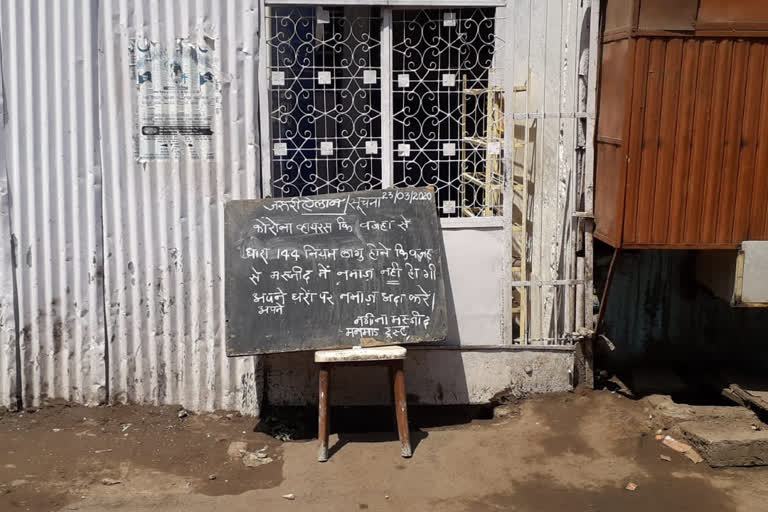 जरुरी ऐलान/सूचना 23/03/2020
कोरोना व्हायरस कि वजहा से
धारा 144 नियम लागु होने कि वजह
से मस्जीद में नमाज़ नही होगी
अपने घरों पर नमाज़ अदा करे।
अपने
नगीना मस्जीद
मनमाड ट्रस्ट